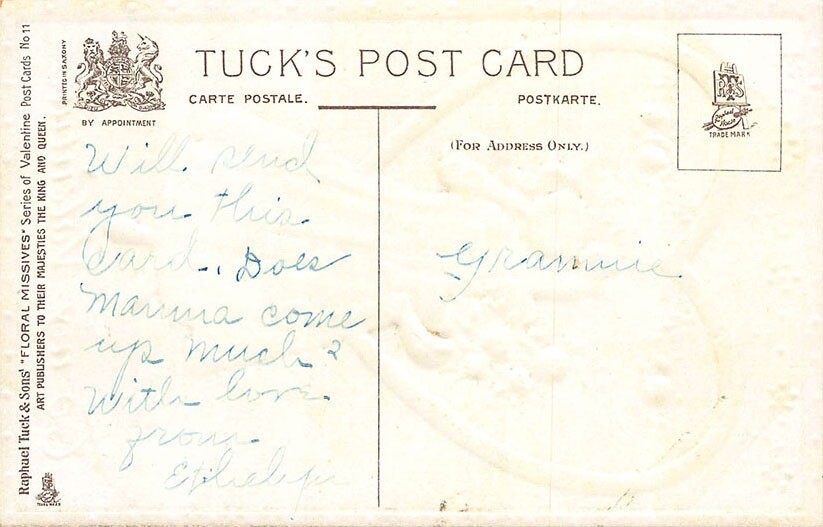 Raphael Tuck & Sons' "FLORAL MISSIVES" Series of Valentine Post Cards No 11
ART PUBLISHERS TO THEIR MAJESTIES THE KING AND QUEEN.
PRINTED IN SAXONY
BY APPOINTMENT
TUCK'S POST CARD
CARTE POSTALE.
POSTKARTE.
(FOR ADDRESS ONLY.)
TRADE MARK
Will send
you this
card. Does
Mamma come
up much?
With love
from
Grannie